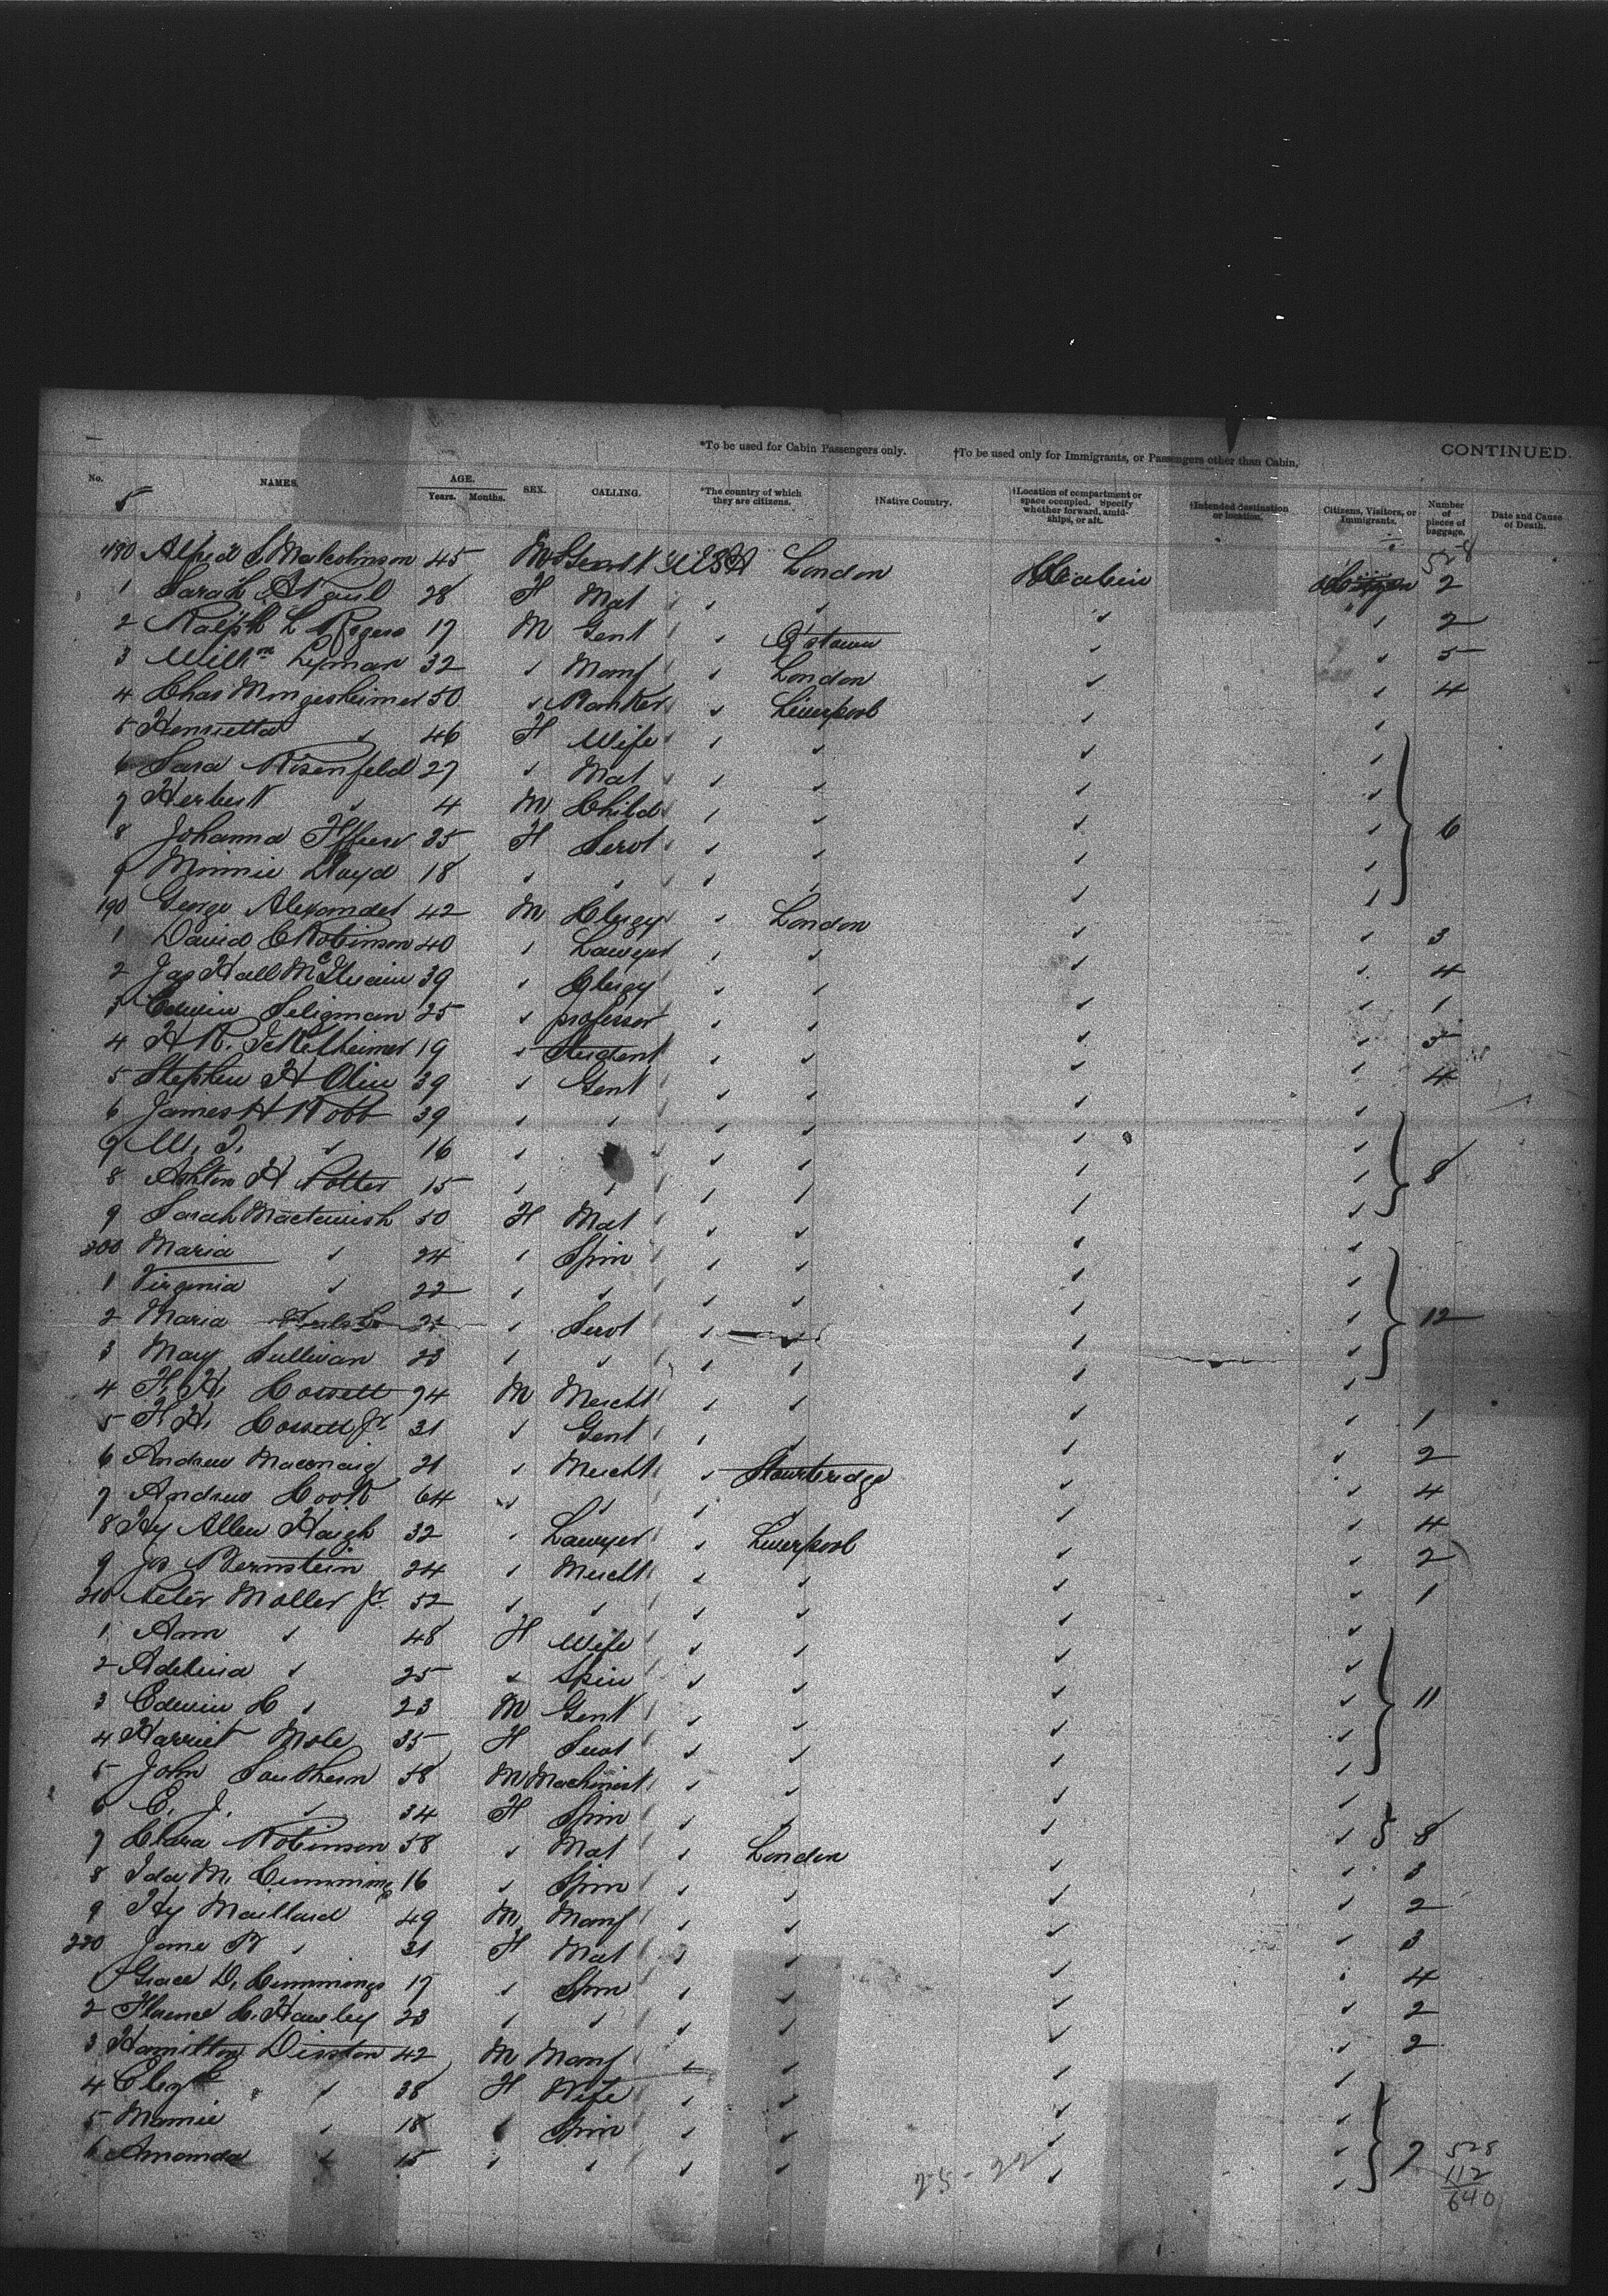 *To be used for Cabin Passengers only. †To be used only for Immigrants, or Passengers other than Cabin. CONTINUED.
No. NAMES. AGE. Years. Months. SEX. CALLING. *The country of which they are citizens. †Native Country. †Location of compartment or space occupied. Specify whether forward, amidships, or aft. †Intended destination or location. Citizens, Visitors, or Immigrants. Number of pieces of baggage. Date and Cause of Death.
5
528
180 Alfred S. Malcolmson 45 M Gent USA London Cabin Citizen 2
1 Sarah 28 F Mat " " " " 2
2 Ralph L Rogers 17 M Gent " Q'stown " " 5
3 Willm Lyman 32 " Manf " London " " 4
4 Chas Mingesheimer 50 " Banker " Liverpool " "
5 Henrietta " 46 F Wife " " " "
6 Sara Rosenfeld 27 " Mat " " " "
7 Herbert " 4 M Child " " " " 6
8 Johanna 35 F Servt " " " "
9 Minnie Lloyd 18 " " " " " "
190 George Alexander 42 M Clergy " London " " 3
1 David C Robinson 40 " Lawyer " " " " 4
2 Jas Hall McIlvain 39 " Clergy " " " " 1
3 Edwin Seligman 25 " professor " " " " 5
4 H R. Ickelheimer 19 " Student " " " " 4
5 Stephen H Olin 39 " Gent " " " "
6 James H Robb 39 " " " " " "
7 " 16 " " " " "
8 Ashton H Potter 15 " " " " " " 8
9 Sarah Mactavish 50 F Mat " " " "
200 Maria " 24 " Spin " " " "
1 Virginia " 22 " " " " " "
2 Maria " Servt " " " " 12
3 Mary Sullivan 23 " " " " " "
4 F. H. Cossitt 74 M Mercht " " " " 1
5 F. H. Cossitt Jr. 31 " Gent " " " " 2
6 Andrew 21 " Mercht " Stourbridge " " 4
7 Andrew Cook 64 " " " " " " 4
8 Hy Allen Haigh 32 " Lawyer " Liverpool " " 2
9 Jos Bernstein 24 " Mercht " " " " 1
210 Peter Moller Jr. 52 " " " " " "
1 Ann " 48 F Wife " " " "
2 Adelina " 25 " Spin " " " "
3 Edwin C " 23 M Gent " " " " 11
4 Harriet Mole 35 F Servt " " " "
5 John Southern 58 M Machinist " " " "
6 E. J. " 34 F Spin " " " " 8
7 Clara Robinson 58 " Mat " London " " 3
8 Ida M. Cummings 16 " Spin " " " " 2
9 Hy Maillard 49 M Manf " " " " 3
220 Jane R " 31 F Mat " " " " 4
1 Grace D. Cummings 17 " Spin " " " " 2
2 Florence C. Hawley 23 " " " " " " 2
3 Hamilton Disston 42 M Manf " " " "
4 " 38 F Wife " " " "
5 Mamie " 18 " Spin " " " "
6 Amanda " 15 " " " " " " 7
528
112
640